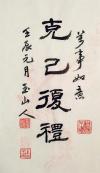 萬事如意
克己復禮
壬辰元月玉山人